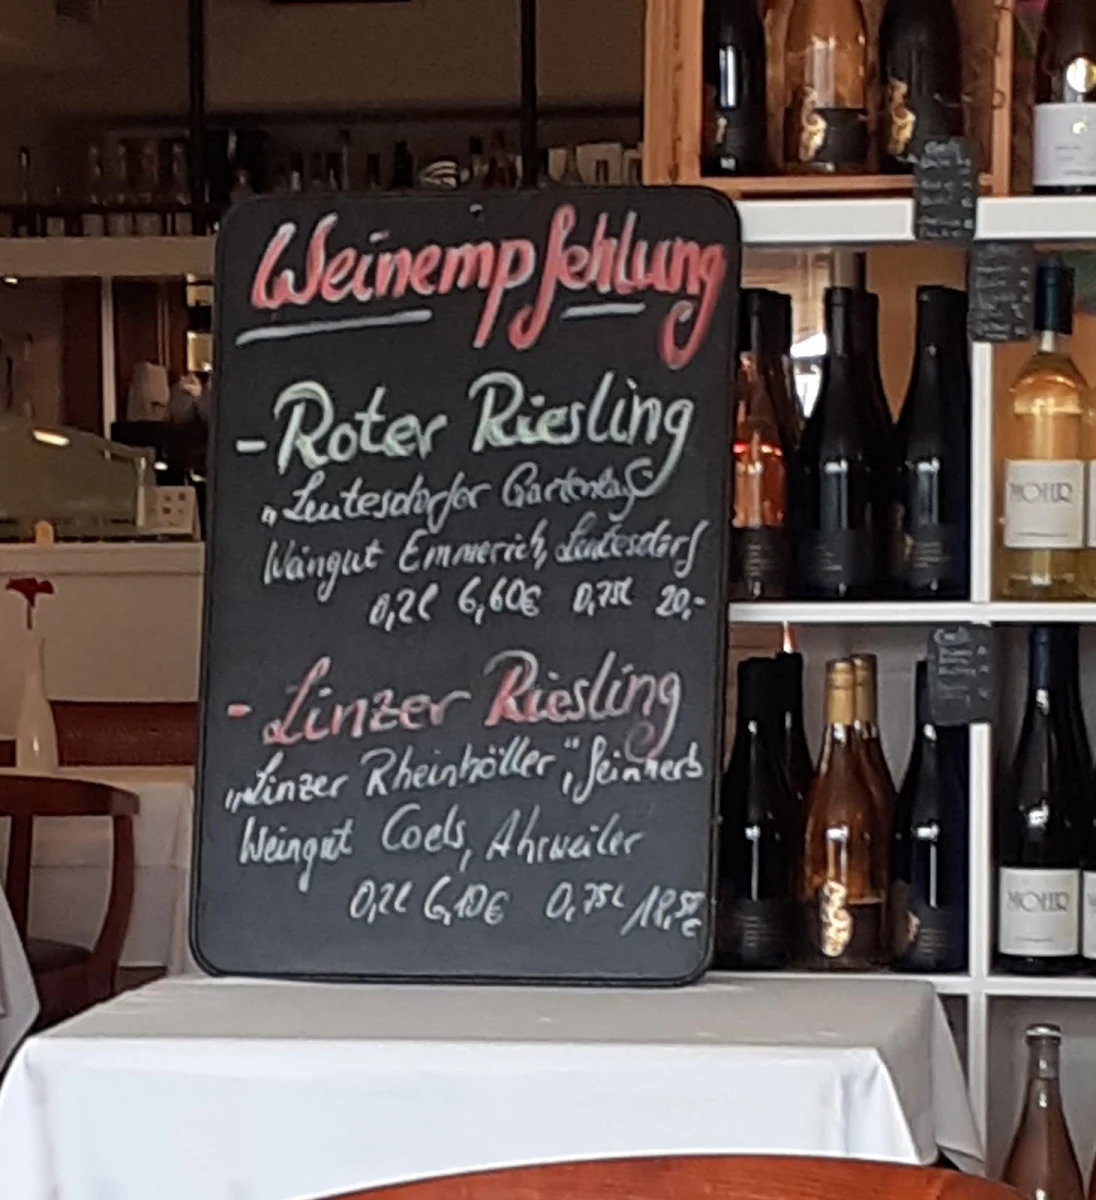 Weinempfehlung
- Roter Riesling
„Leutesdorfer Gartenlay“
Weingut Emmerich, Leutesdorf
0,2l 6,60€ 0,75l 20,-
- Linzer Riesling
„Linzer Rheinhöller“, feinherb
Weingut Coels, Ahrweiler
0,2l 6,10€ 0,75l 18,50€
MOHR
MOHR